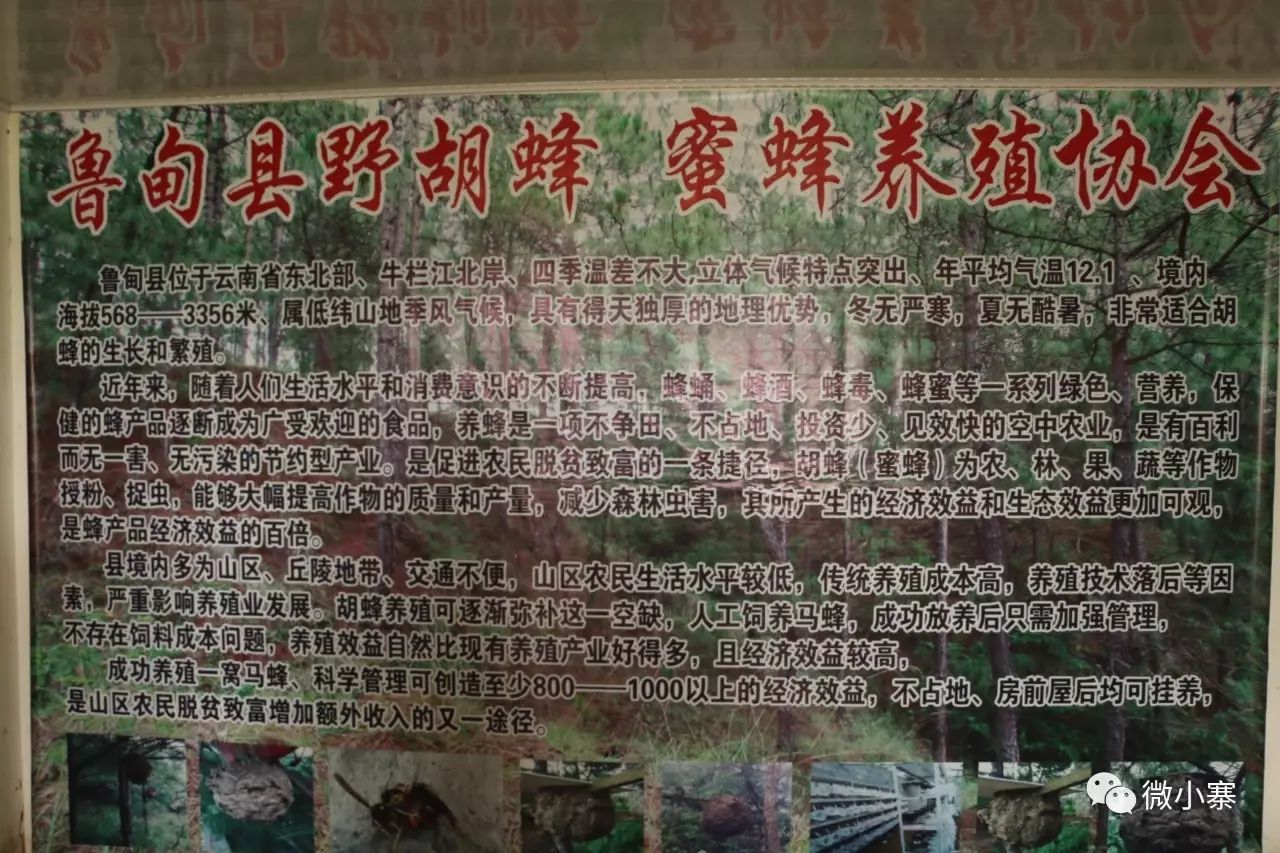 鲁甸县野胡蜂 蜜蜂养殖协会
鲁甸县位于云南省东北部、牛栏江北岸、四季温差不大,立体气候特点突出、年平均气温12.1 、境内
海拔568——3356米、属低纬山地季风气候，具有得天独厚的地理优势，冬无严寒，夏无酷暑，非常适合胡
蜂的生长和繁殖。
近年来，随着人们生活水平和消费意识的不断提高，蜂蛹、蜂酒、蜂毒、蜂蜜等一系列绿色、营养，保
健的蜂产品逐断成为广受欢迎的食品，养蜂是一项不争田、不占地、投资少、见效快的空中农业，是有百利
而无一害、无污染的节约型产业。是促进农民脱贫致富的一条捷径，胡蜂（蜜蜂）为农、林、果、蔬等作物
授粉、捉虫，能够大幅提高作物的质量和产量，减少森林虫害，其所产生的经济效益和生态效益更加可观，
是蜂产品经济效益的百倍。
县境内多为山区、丘陵地带、交通不便，山区农民生活水平较低，传统养殖成本高，养殖技术落后等因
素，严重影响养殖业发展。胡蜂养殖可逐渐弥补这一空缺，人工饲养马蜂，成功放养后只需加强管理，
不存在饲料成本问题，养殖效益自然比现有养殖产业好得多，且经济效益较高，
成功养殖一窝马蜂、科学管理可创造至少800——1000以上的经济效益，不占地、房前屋后均可挂养，
是山区农民脱贫致富增加额外收入的又一途径。
微小寨